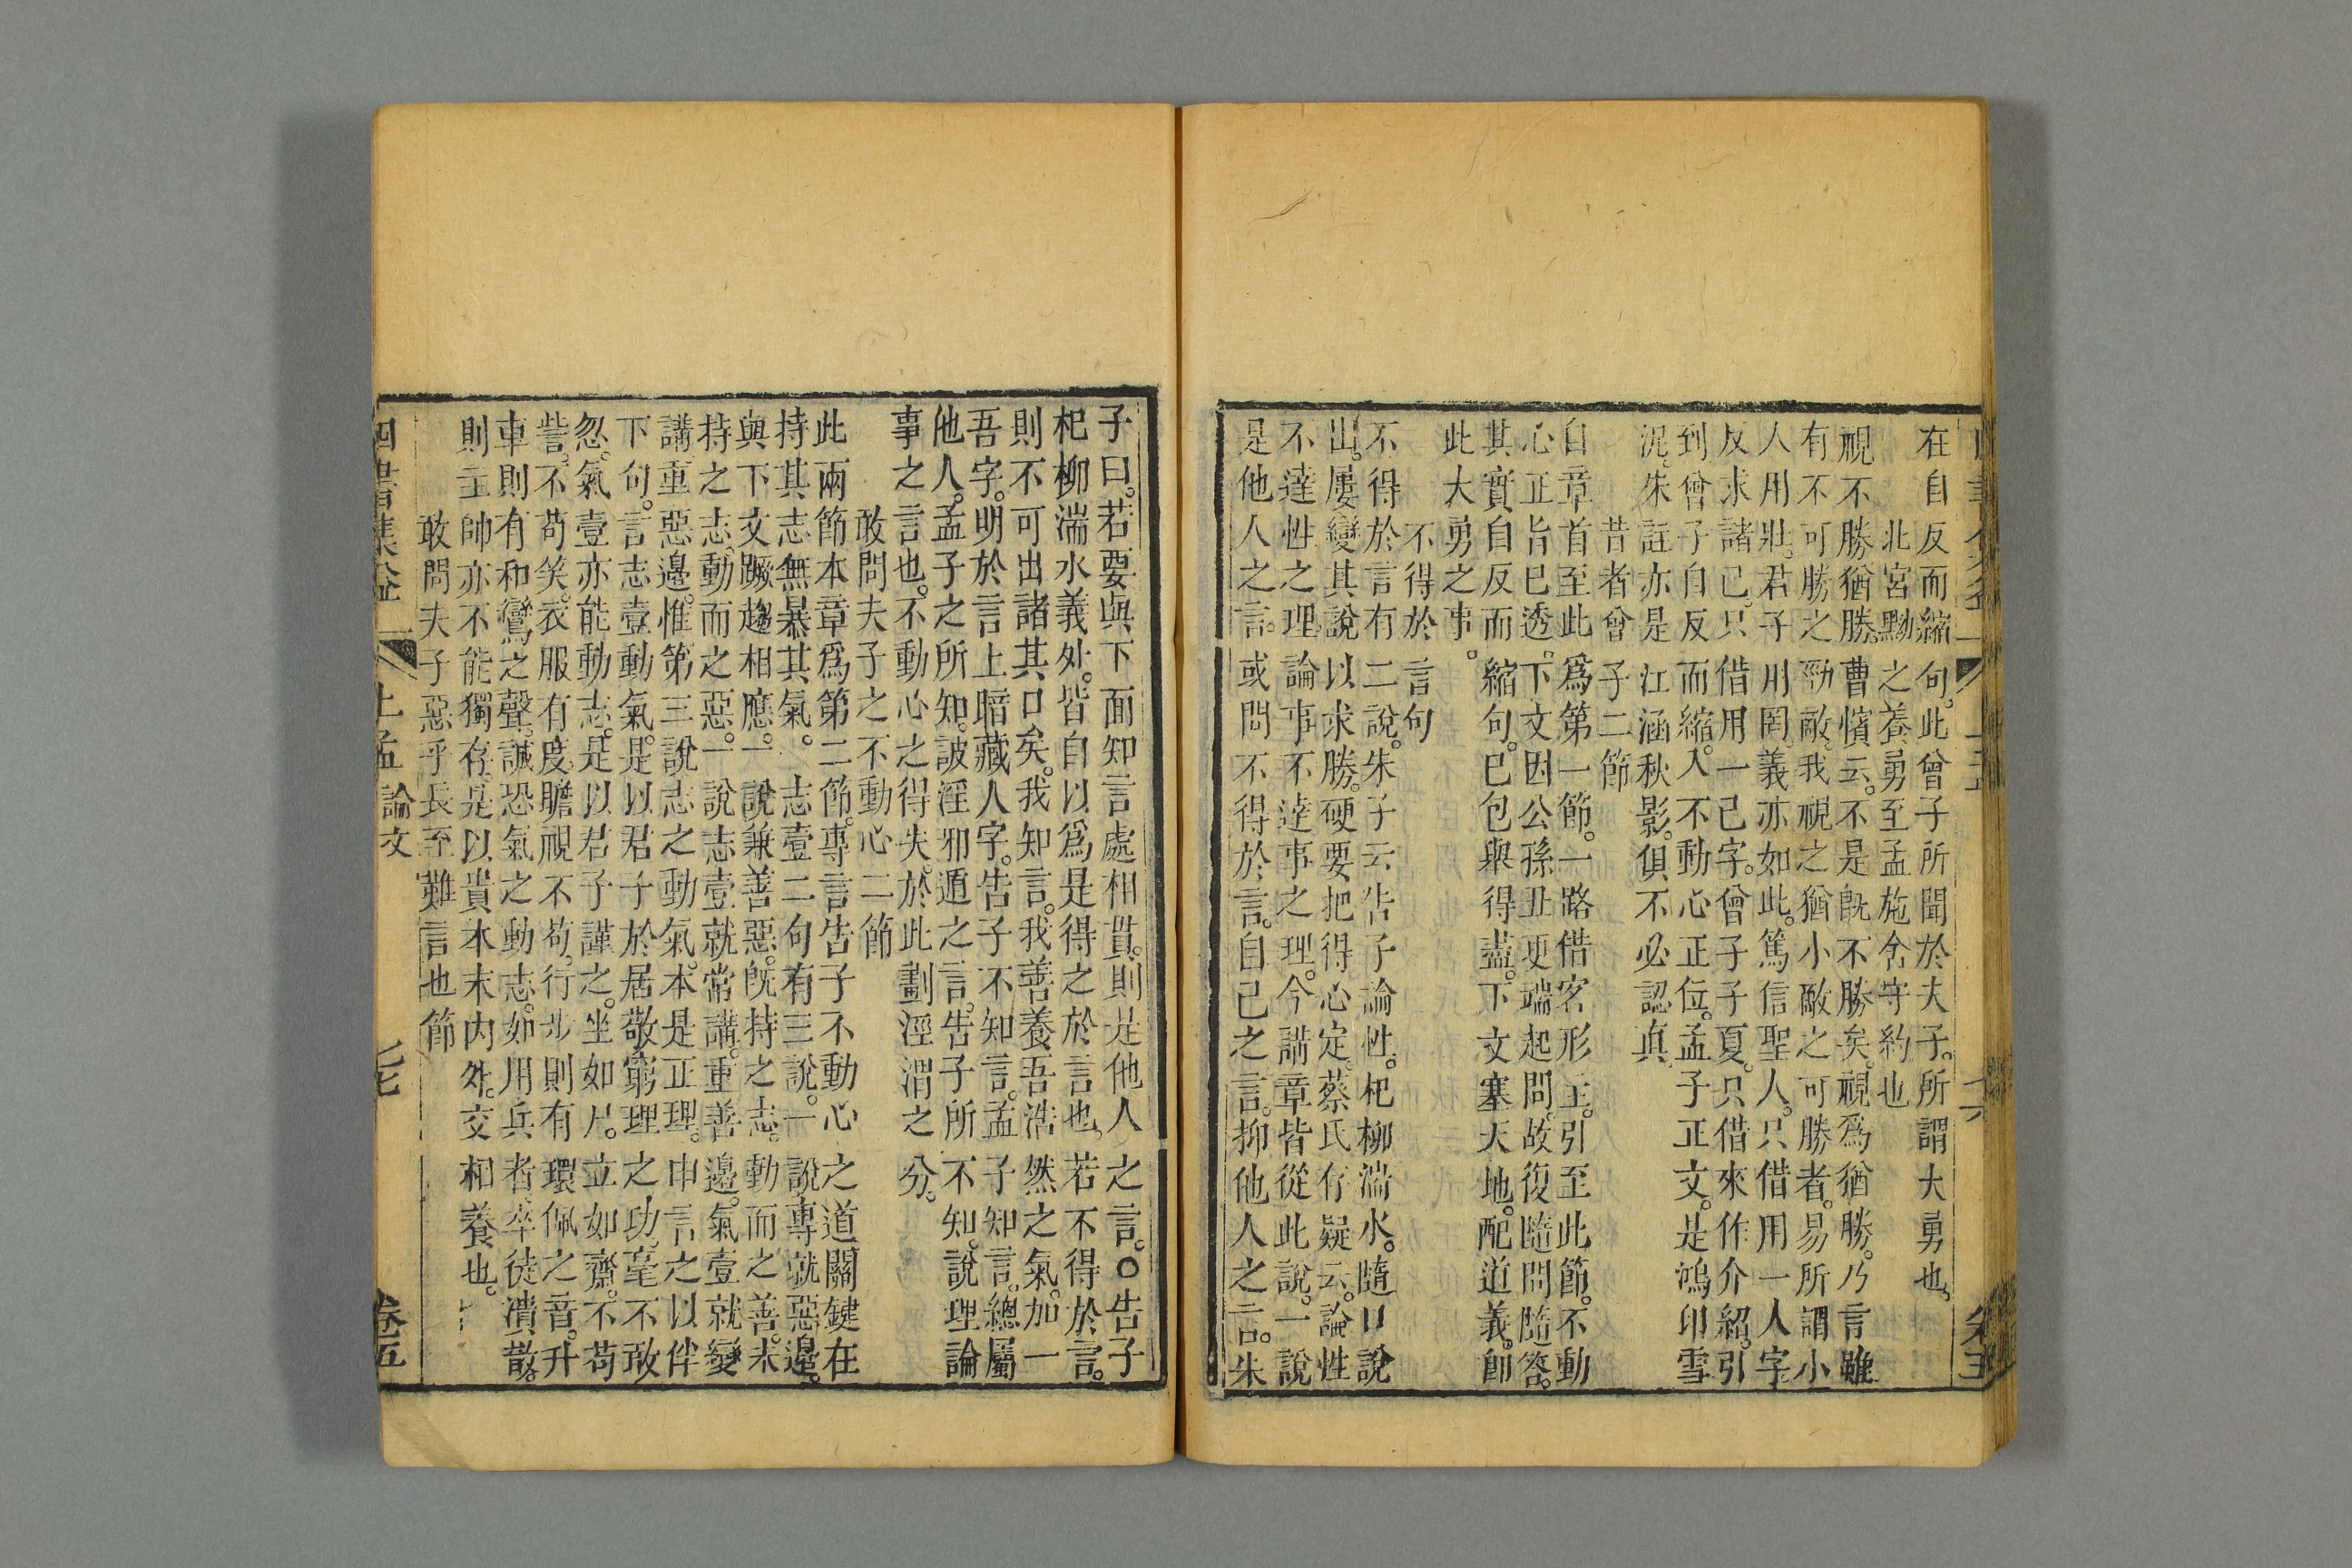 在自反而縮句。此曾子所聞於夫子。所謂大勇也。
北宮黝之養勇至孟施舍守約也
視不勝猶勝。曹懫云。不是旣不勝矣。視爲猶勝。乃言雖
有不可勝之勁敵。我視之猶小敵之可勝者。易所謂小
人用壯。君子用罔。義亦如此。篤信聖人。只借用一人字。
反求諸己。只借用一己字。曾子子夏。只借來作介紹。引
到曾子自反而縮。入不動心正位。孟子正文。是鴻印雪
泥。朱註亦是江涵秋影。俱不必認真。
昔者曾子二節
自章首至此爲第一節。一路借客形主。引至此節。不動
心正旨已透。下文因公孫丑更端起問。故復隨問隨答。
其實自反而縮句。已包舉得盡。下文塞天地。配道義。卽
此大勇之事。
不得於言句
不得於言有二說。朱子云告子論性。杞柳湍水。隨口說
出。屢變其說以求勝。硬要把得心定。蔡氏存疑云。論性
不達性之理。論事不達事之理。今講章皆從此說。一說
是他人之言。或問不得於言。自己之言。抑他人之言。朱
子曰。若要與下面知言處相貫。則是他人之言。○告子
杞柳湍水義外。皆自以爲是得之於言也。若不得於言。
則不可出諸其口矣。我知言。我善養吾浩然之氣。加一
吾字。明於言上暗藏人字。告子不知言。孟子知言。總屬
他人。孟子之所知。詖淫邪遁之言。告子所不知。說理論
事之言也。不動心之得失。於此劃涇渭之分。
敢問夫子之不動心二節
此兩節本章爲第二節。專言告子不動心之道關鍵在
持其志無暴其氣。志壹二句有三說。一說專就惡邊。
與下文蹶趨相應。一說兼善惡。旣持之志。動而之善。未
持之志。動而之惡。一說志壹就常講。重善邊。氣壹就變
講。重惡邊。惟第三說志之動氣。本是正理。申言之以伴
下句。言志壹動氣。是以君子於居敬窮理之功。毫不敢
忽。氣壹亦能動志。是以君子謹之。坐如尸。立如齋。不苟
訾。不苟笑。衣服有度。瞻視不苟。行步則有環佩之音。升
車則有和鸞之聲。誠恐氣之動志。如用兵者。卒徒潰散。
則主帥亦不能獨存。是以貴本末內外。交相養也。
敢問夫子惡乎長至難言也節
四書集
上孟 論文
七
卷五